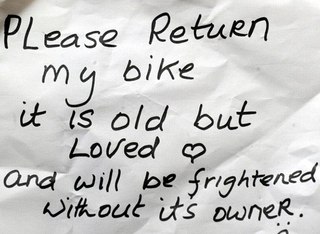 PLease Return
my bike
it is old but
Loved ♡
and will be frightened
without it's owner.